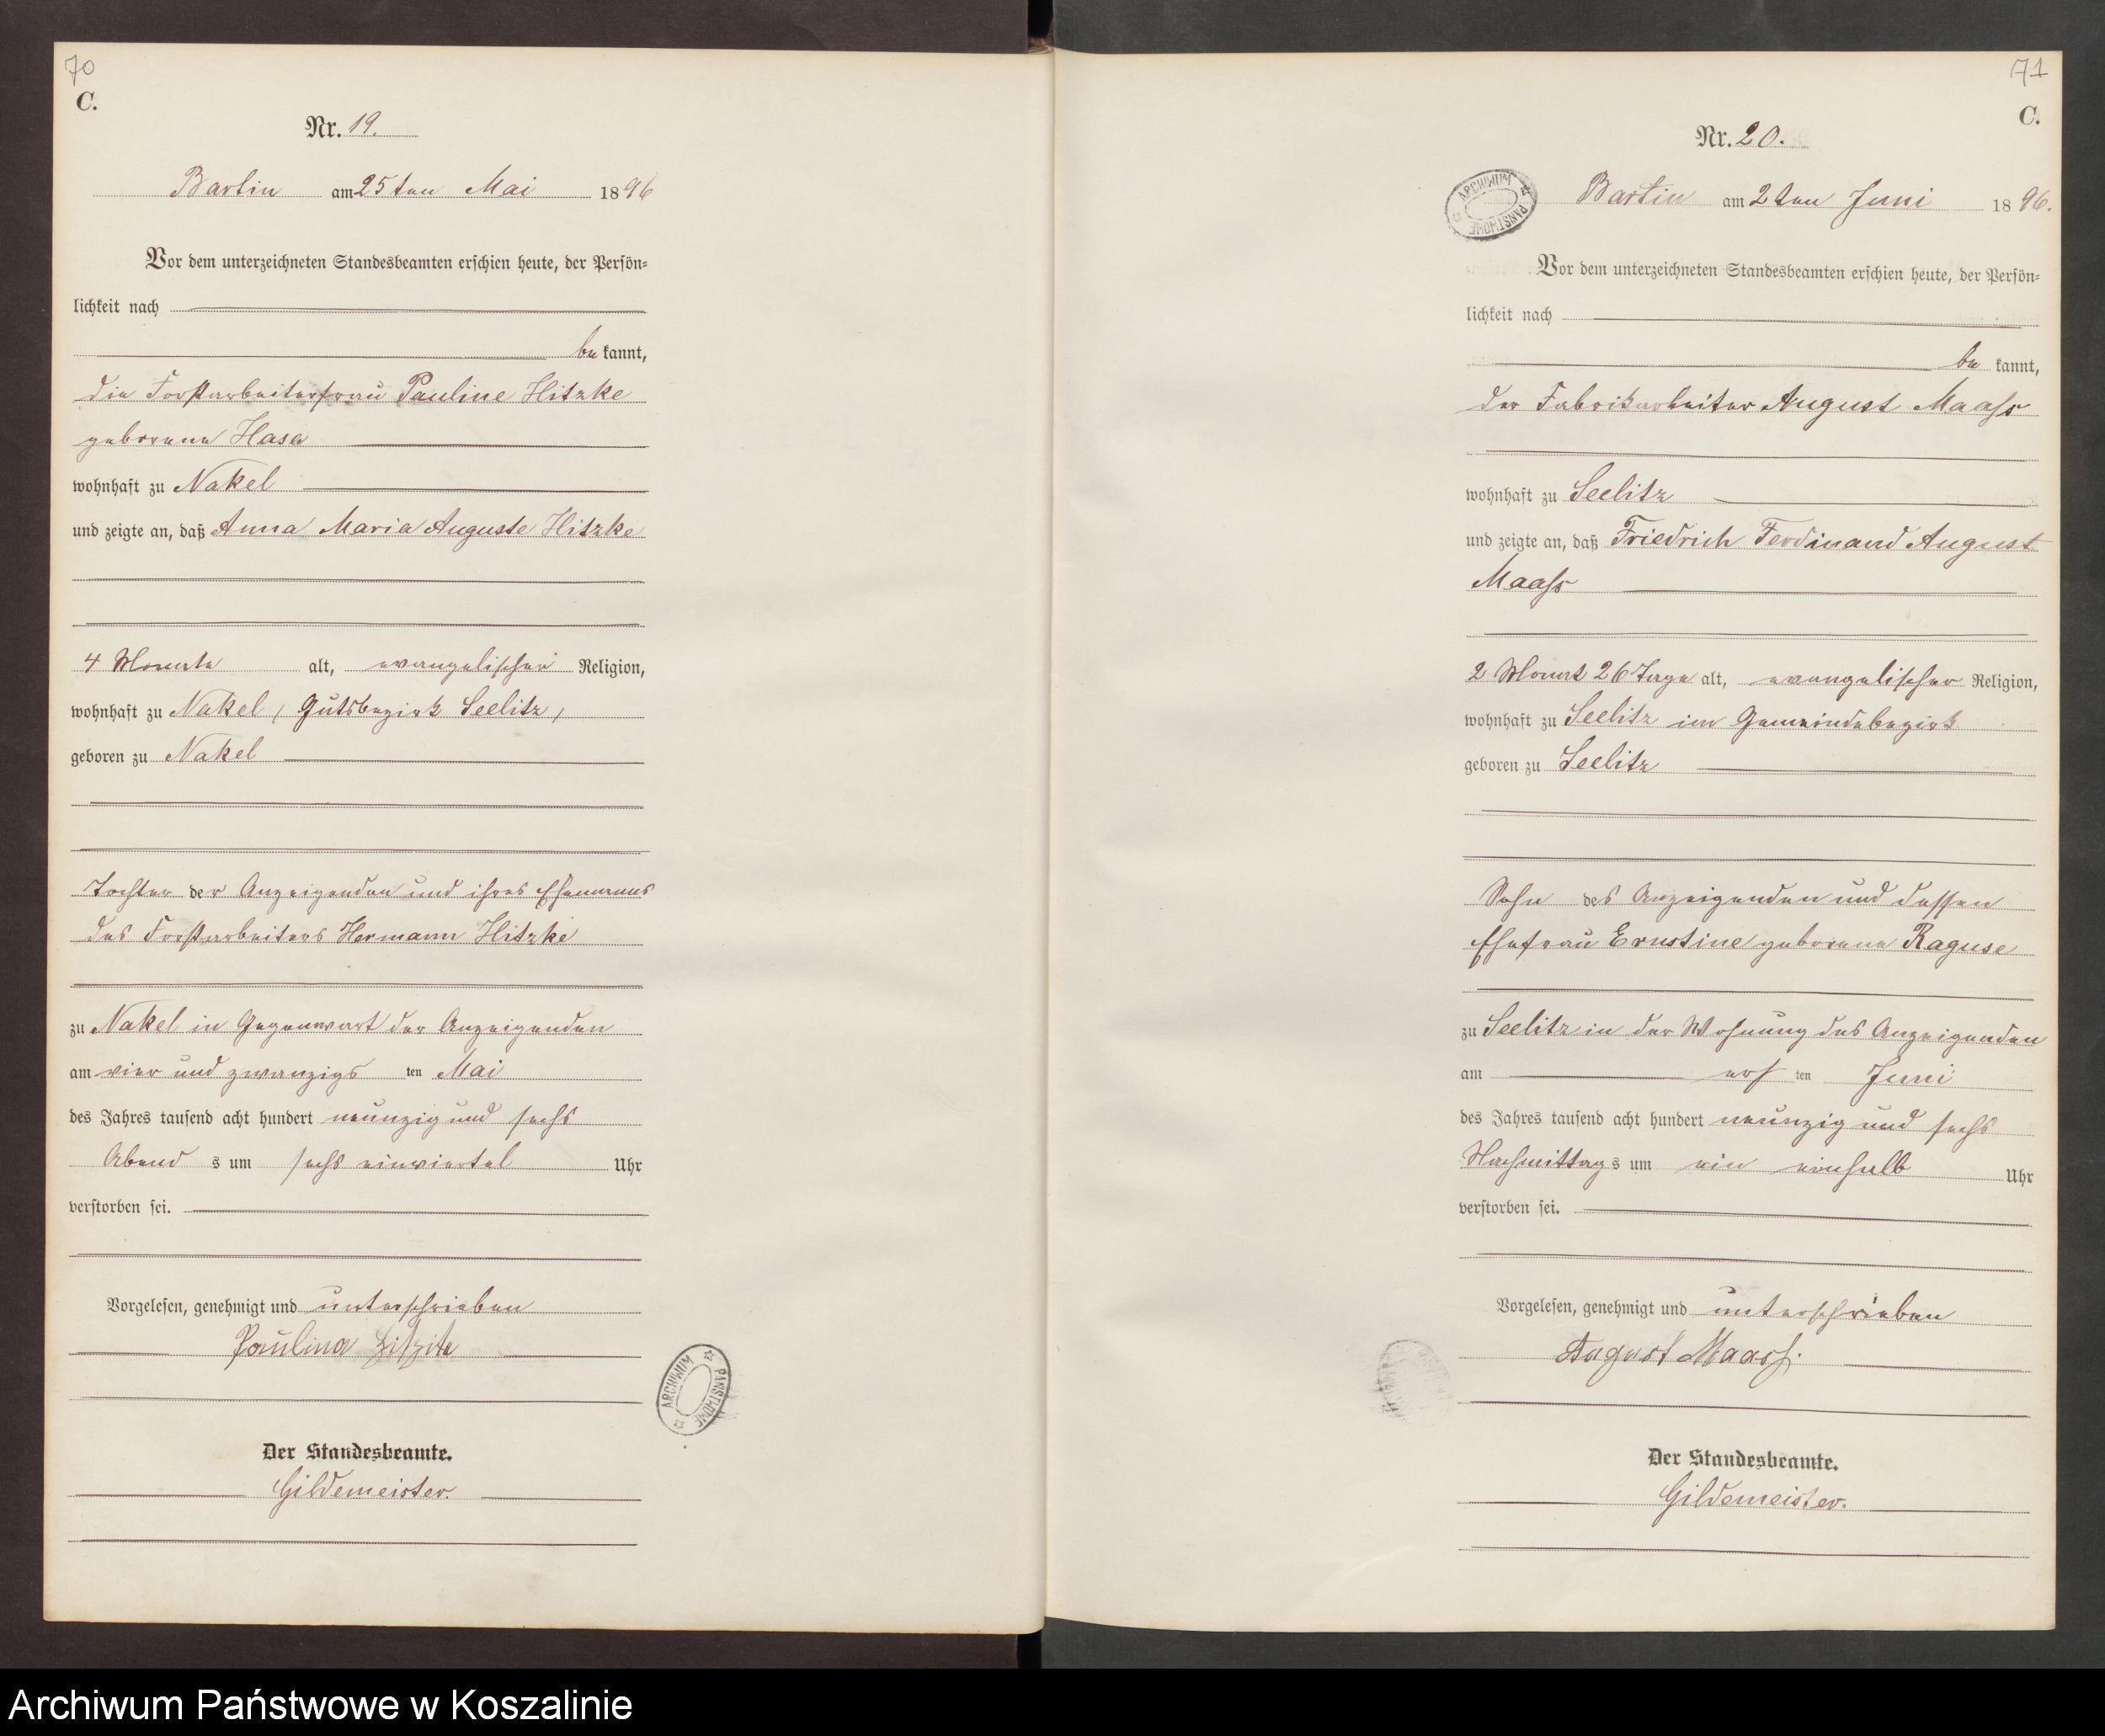 70
C.
Nr. 19.
Bartin am 25ten Mai 1896
Vor dem unterzeichneten Standesbeamten erschien heute, der Persön=
lichkeit nach
be kannt,
die Forstarbeiterfrau Pauline Hitzke
geborene Hase
wohnhaft zu Nakel
und zeigte an, daß Anna Maria Auguste Hitzke
4 Monate alt, evangelischer Religion,
wohnhaft zu Nakel, Gutsbezirk Seelitz,
geboren zu Nakel
Tochter der Anzeigenden und ihres Ehemanns
des Forstarbeiters Hermann Hitzke
zu Nakel in Gegenwart der Anzeigenden
am vier und zwanzigs ten Mai
des Jahres tausend acht hundert neunzig und sechs
Abend s um sechs einviertel Uhr
verstorben sei.
Vorgelesen, genehmigt und unterschrieben
Pauline Hitzke
Der Standesbeamte.
Gildemeister.
ARCHIWUM PAŃSTWOWE
71
C.
Nr. 20.
ARCHIWUM PAŃSTWOWE
Bartin am 2ten Juni 1896.
Vor dem unterzeichneten Standesbeamten erschien heute, der Persön=
lichkeit nach
be kannt,
der Fabrikarbeiter August Maass
wohnhaft zu Seelitz
und zeigte an, daß Friedrich Ferdinand August
Maass
2 Monat 26 Tage alt, evangelischer Religion,
wohnhaft zu Seelitz im Gemeindebezirk
geboren zu Seelitz
Sohn des Anzeigenden und dessen
Ehefrau Ernstine geborene Raguse
zu Seelitz in der Wohnung des Anzeigenden
am ers ten Juni
des Jahres tausend acht hundert neunzig und sechs
Nachmittag s um ein einhalb Uhr
verstorben sei.
Vorgelesen, genehmigt und unterschrieben
August Maass.
Der Standesbeamte.
Gildemeister.
Archiwum Państwowe w Koszalinie